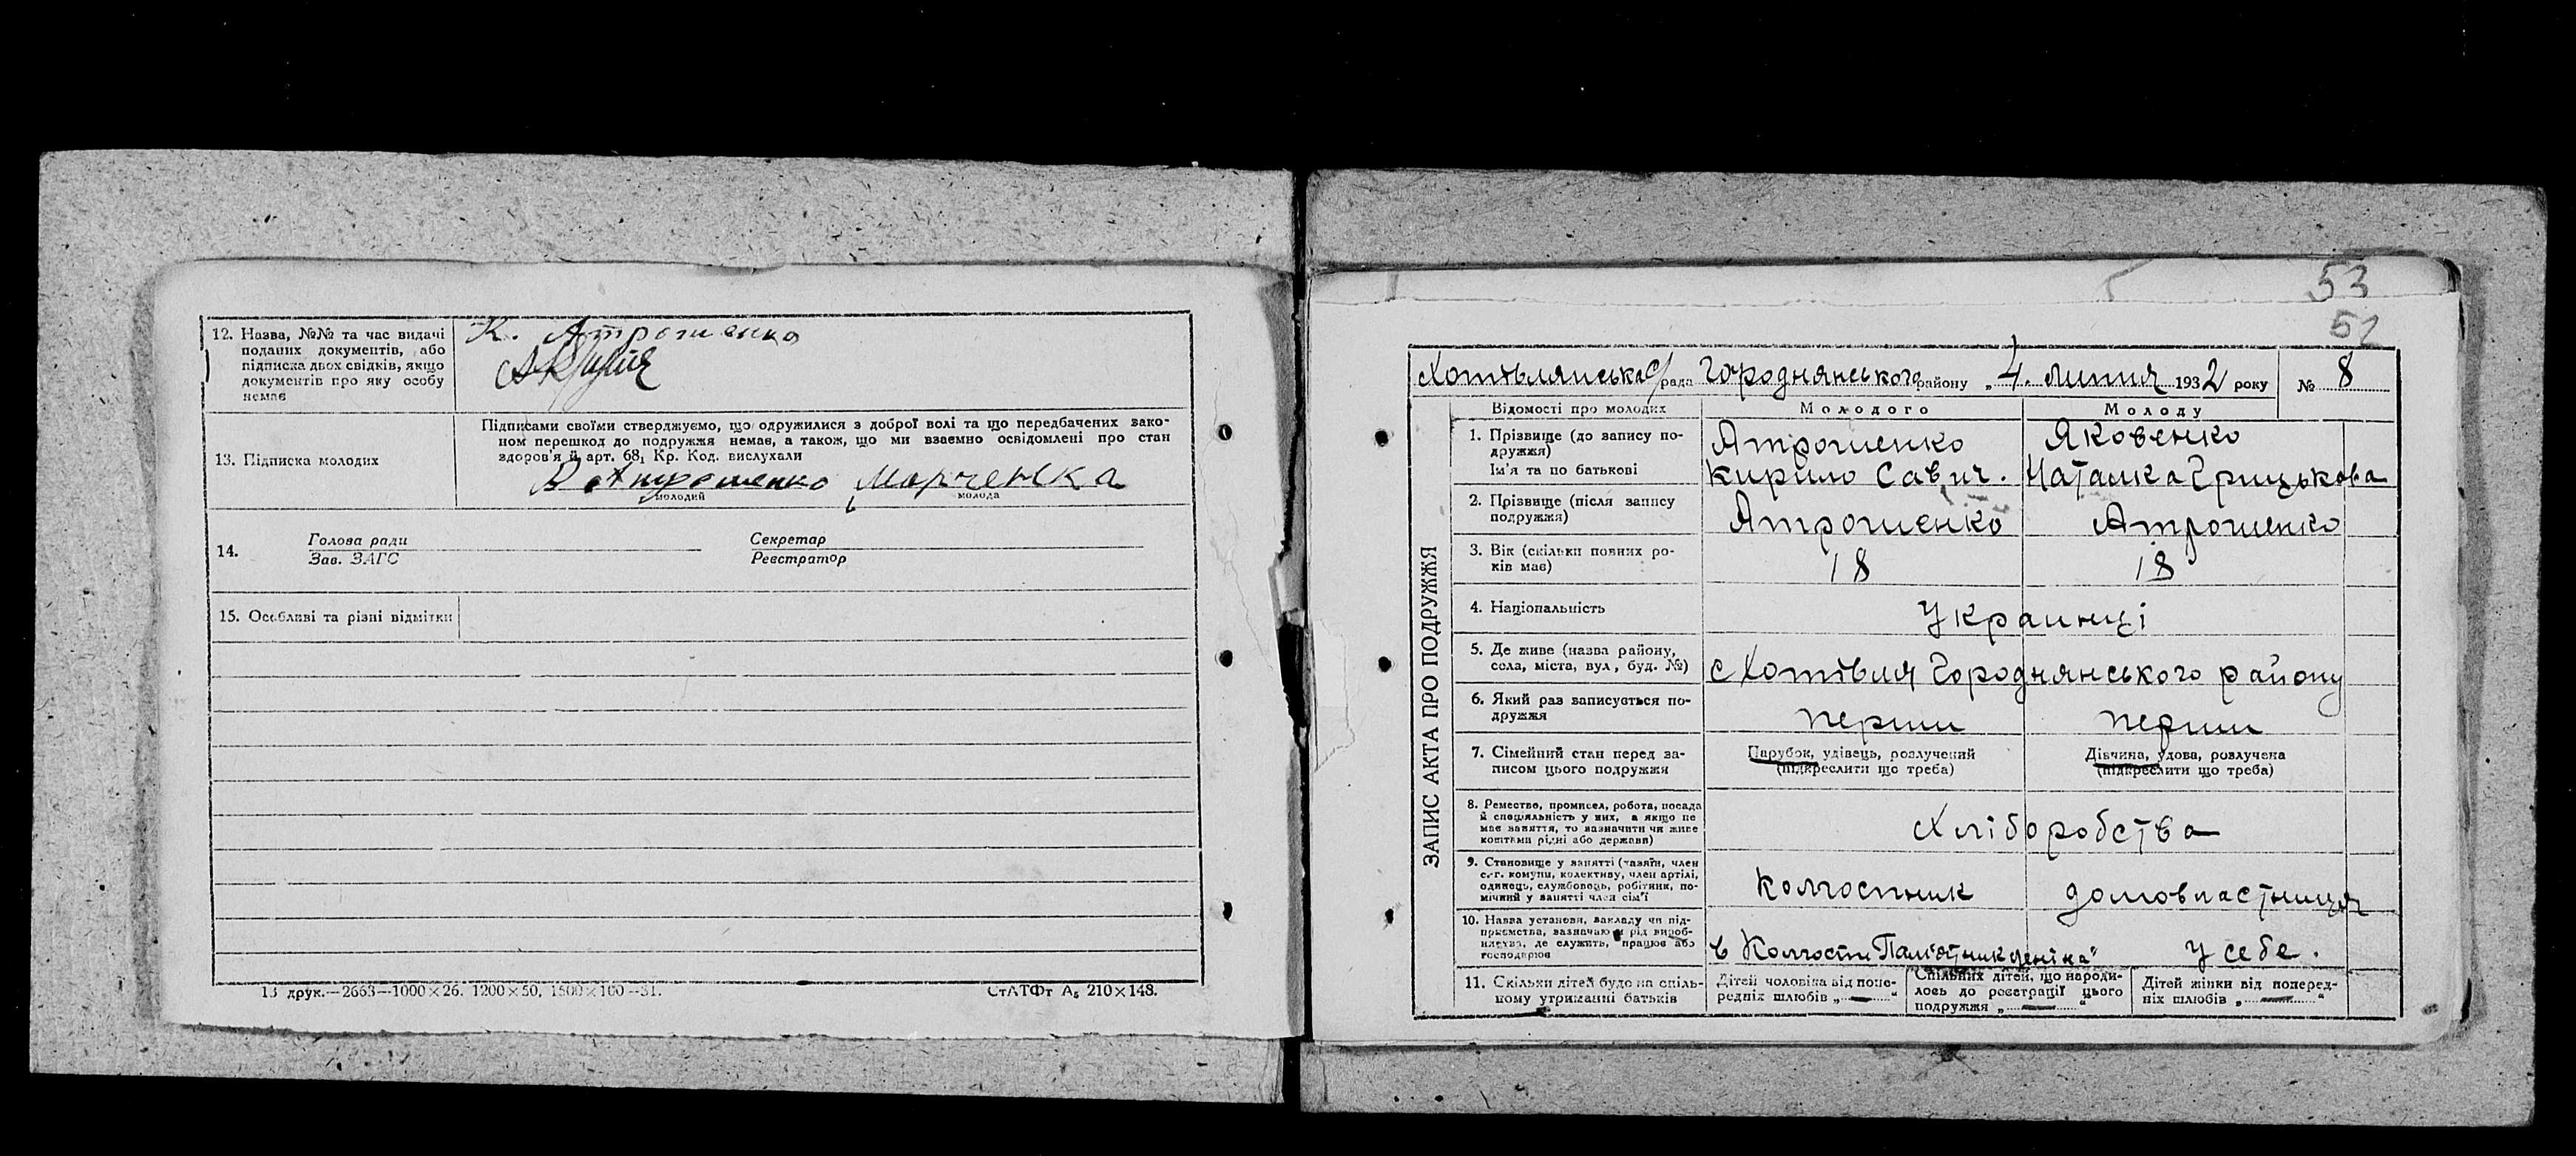 12. Назва, №№ та час видачі
поданих документів, або
підписка двох свідків, якщо
документів про яку особу
немає
К. Атрошенко
13. Підписка молодих
Підписами своїми стверджуємо, що одружилися з доброї волі та що передбачених зако-
ном перешкод до подружжя немає, а також, що ми взаємно освідомлені про стан
здоров'я й арт. 68₁ Кр. Код. вислухали
Атрошенко Марченка
молодий молода
14. Голова ради Секретар
Зав. ЗАГС Реєстратор
15. Особливі та різні відмітки
13 друк.—2663—1000×26. 1200×50, 1500×100—31. СтАТФт А₅ 210×148.
53
52
Хотівлянська с/рада Городнянського району „4. липня 1932 року № 8
ЗАПИС АКТА ПРО ПОДРУЖЖЯ
Відомості про молодих Молодого Молоду
1. Прізвище (до запису по-
дружжя)
Ім'я та по батькові
Атрошенко Яковенко
Кирило Савич. Наталка Грицькова
2. Прізвище (після запису
подружжя)
Атрошенко Атрошенко
3. Вік (скільки повних ро-
ків має)
18 18
4. Національність
Украинці
5. Де живе (назва району,
села, міста, вул, буд. №)
с Хотівля Городнянського району
6. Який раз записується по-
дружжя
перши перши
7. Сімейний стан перед за-
писом цього подружжя
Парубок, удівець, розлучений
(підкреслити що треба)
Дівчина, удова, розлучена
(підкреслити що треба)
8. Ремество, промисел, робота, посада
й спеціяльність у них, а якщо не
має заняття, то зазначити чи живе
коштами рідні або держави)
Хліборобства
9. Становище у занятті (хазяїн, член
с.-г. комуни, колективу, член артілі,
одинець, службовець, робітник, по-
мічний у занятті член сім'ї
колгоспник домовластниця
10. Назва установи, закладу чи під-
приємства, зазначаючи рід вироб-
ництва, де служить, працює або
господарює
в Колгоспи „Памятник Леніна" у себе.
11. Скільки дітей буде на спіль-
ному утриманні батьків
Дітей чоловіка від попе-
редніх шлюбів „—"
Спільних дітей, що народи-
лось до реєстрації цього
подружжя „—"
Дітей жінки від поперед-
ніх шлюбів „—"